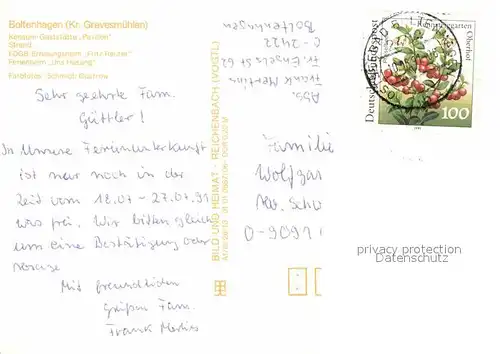 Boltenhagen (Kr. Grevesmühlen)
Konsum-Gaststätte „Pavillon"
Strand
FDGB-Erholungsheim „Fritz Reuter"
Ferienheim „Uns Hüsung"
Farbfotos: Schmidt, Güstrow
Sehr geehrte Fam.
Güttler!
In unserer Ferienunterkunft
ist nur noch in der
Zeit vom 18.07 - 27.07.91
was frei. Wir bitten gleich
um eine Bestätigung oder
Mit freundlichen
Grüßen Fam.
Frank Mertins
BILD UND HEIMAT · REICHENBACH (VOGTL)
Abs.
Frank Mertins
Fr. Engels St 62
O-2422
Boltenhagen
Familie
Wolfgan
O-9091
Deutsche Bundespost
Rennsteiggarten Oberhof
100
1991
privacy protection
Datenschutz